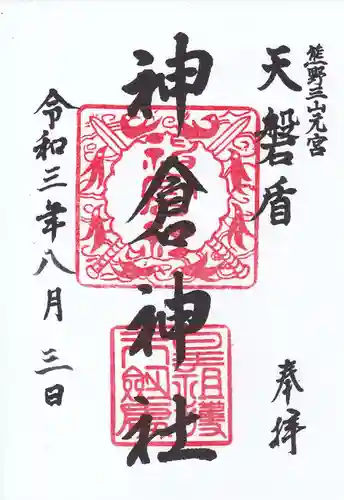 熊野三山元宮
天磐盾
奉拝
神倉神社
令和三年八月三日